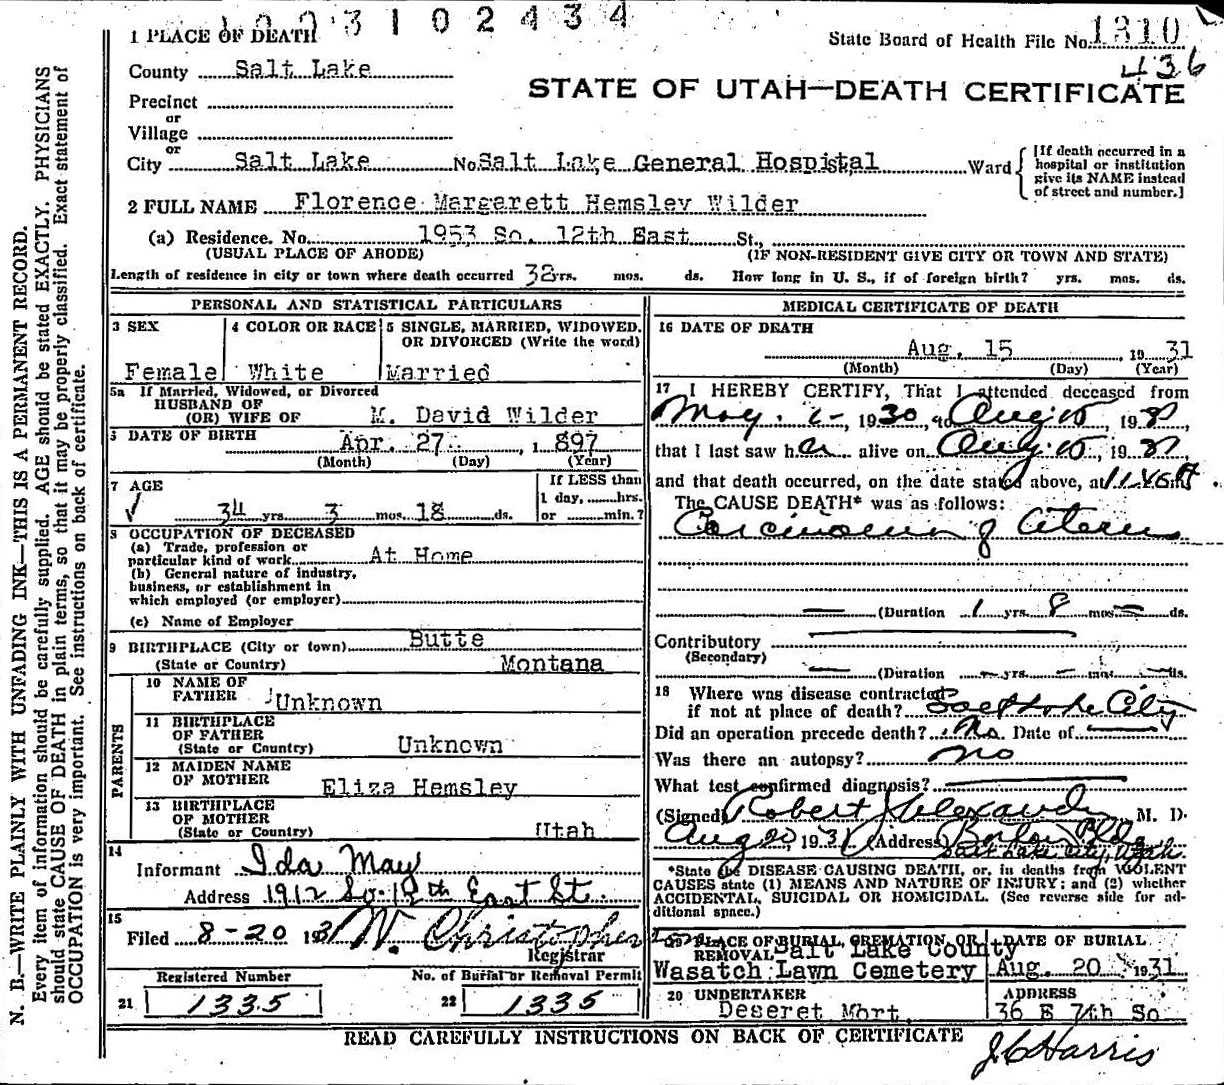 1 0 0 3 1 0 2 4 3 4
1 PLACE OF DEATH
State Board of Health File No. 1310
436
County Salt Lake
STATE OF UTAH—DEATH CERTIFICATE
Precinct
or
Village
or
City Salt Lake No. Salt Lake General Hospital Ward
[If death occurred in a hospital or institution give its NAME instead of street and number.]
2 FULL NAME Florence Margarett Hemsley Wilder
(a) Residence. No. 1953 So. 12th East St.,
(USUAL PLACE OF ABODE) (IF NON-RESIDENT GIVE CITY OR TOWN AND STATE)
Length of residence in city or town where death occurred 32 yrs. mos. ds. How long in U. S., if of foreign birth? yrs. mos. ds.
PERSONAL AND STATISTICAL PARTICULARS
3 SEX
Female
4 COLOR OR RACE
White
5 SINGLE, MARRIED, WIDOWED, OR DIVORCED (Write the word)
Married
5a If Married, Widowed, or Divorced
HUSBAND OF
(OR) WIFE OF M. David Wilder
6 DATE OF BIRTH Apr. 27 , 1 897
(Month) (Day) (Year)
7 AGE
34 yrs. 3 mos. 18 ds.
If LESS than
1 day, hrs.
or min.?
8 OCCUPATION OF DECEASED
(a) Trade, profession or
particular kind of work At Home
(b) General nature of industry,
business, or establishment in
which employed (or employer)
(c) Name of Employer
9 BIRTHPLACE (City or town) Butte
(State or Country) Montana
PARENTS
10 NAME OF
FATHER Unknown
11 BIRTHPLACE
OF FATHER
(State or Country) Unknown
12 MAIDEN NAME
OF MOTHER Eliza Hemsley
13 BIRTHPLACE
OF MOTHER
(State or Country) Utah
14
Informant Ida May
Address 1912 So. 12th East St.
15
Filed 8-20 1931 W. Christopher
Registrar
Registered Number
21 1335
No. of Burial or Removal Permit
22 1335
MEDICAL CERTIFICATE OF DEATH
16 DATE OF DEATH
Aug. 15 19 31
(Month) (Day) (Year)
17 I HEREBY CERTIFY, That I attended deceased from
May , 1930, to Aug 15, 1931
that I last saw her alive on Aug 15, 1931
and that death occurred, on the date stated above, at 11:40
The CAUSE DEATH* was as follows:
Carcinoma of Uterus
(Duration 1 yrs. 8 mos. ds.
Contributory
(Secondary)
(Duration yrs. mos. ds.
18 Where was disease contracted
if not at place of death? Salt Lake City
Did an operation precede death? No. Date of
Was there an autopsy? No
What test confirmed diagnosis?
(Signed) Robert Alexander M. D.
Aug 20, 1931 (Address) Boston Bldg
Salt Lake City, Utah.
*State the DISEASE CAUSING DEATH, or, in deaths from VIOLENT
CAUSES state (1) MEANS AND NATURE OF INJURY: and (2) whether
ACCIDENTAL, SUICIDAL OR HOMICIDAL. (See reverse side for ad-
ditional space.)
19 PLACE OF BURIAL, CREMATION, OR
REMOVAL Salt Lake County
Wasatch Lawn Cemetery
DATE OF BURIAL
Aug. 20 1931
20 UNDERTAKER
Deseret Mort.
ADDRESS
36 E 7th So
READ CAREFULLY INSTRUCTIONS ON BACK OF CERTIFICATE
J C Harris
N. B.—WRITE PLAINLY WITH UNFADING INK—THIS IS A PERMANENT RECORD.
Every item of information should be carefully supplied. AGE should be stated EXACTLY. PHYSICIANS
should state CAUSE OF DEATH in plain terms, so that it may be properly classified. Exact statement of
OCCUPATION is very important. See instructions on back of certificate.